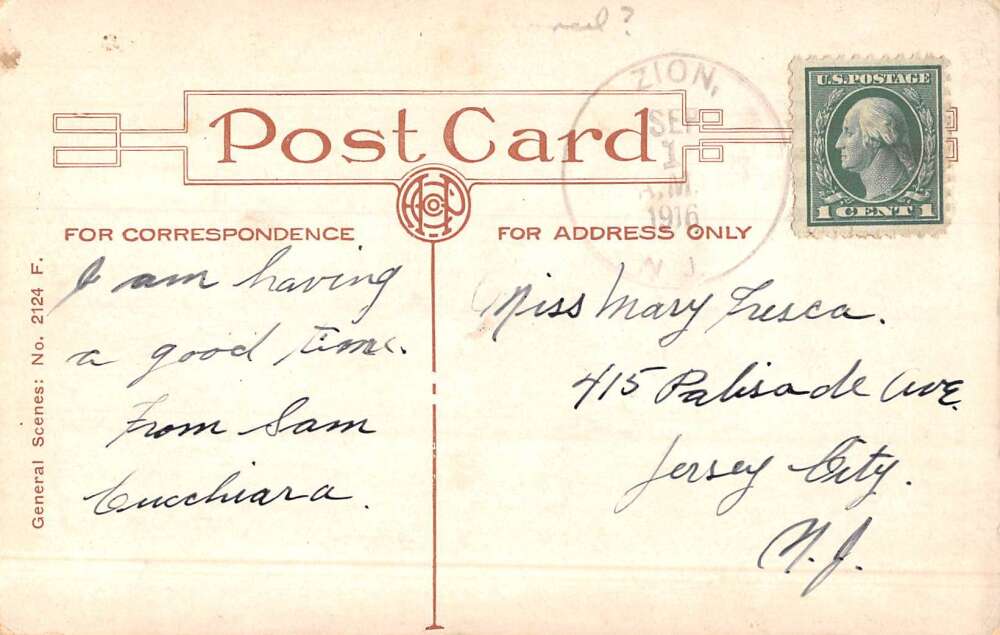 ZION,
SEP
1
A.M.
1916
N.J.
U.S. POSTAGE
1 CENT 1
Post Card
FOR CORRESPONDENCE
FOR ADDRESS ONLY
General Scenes: No. 2124 F.
I am having
a good time.
From Sam
Cucchiara.
Miss Mary Fresca.
415 Palisade Ave.
Jersey City.
N.J.